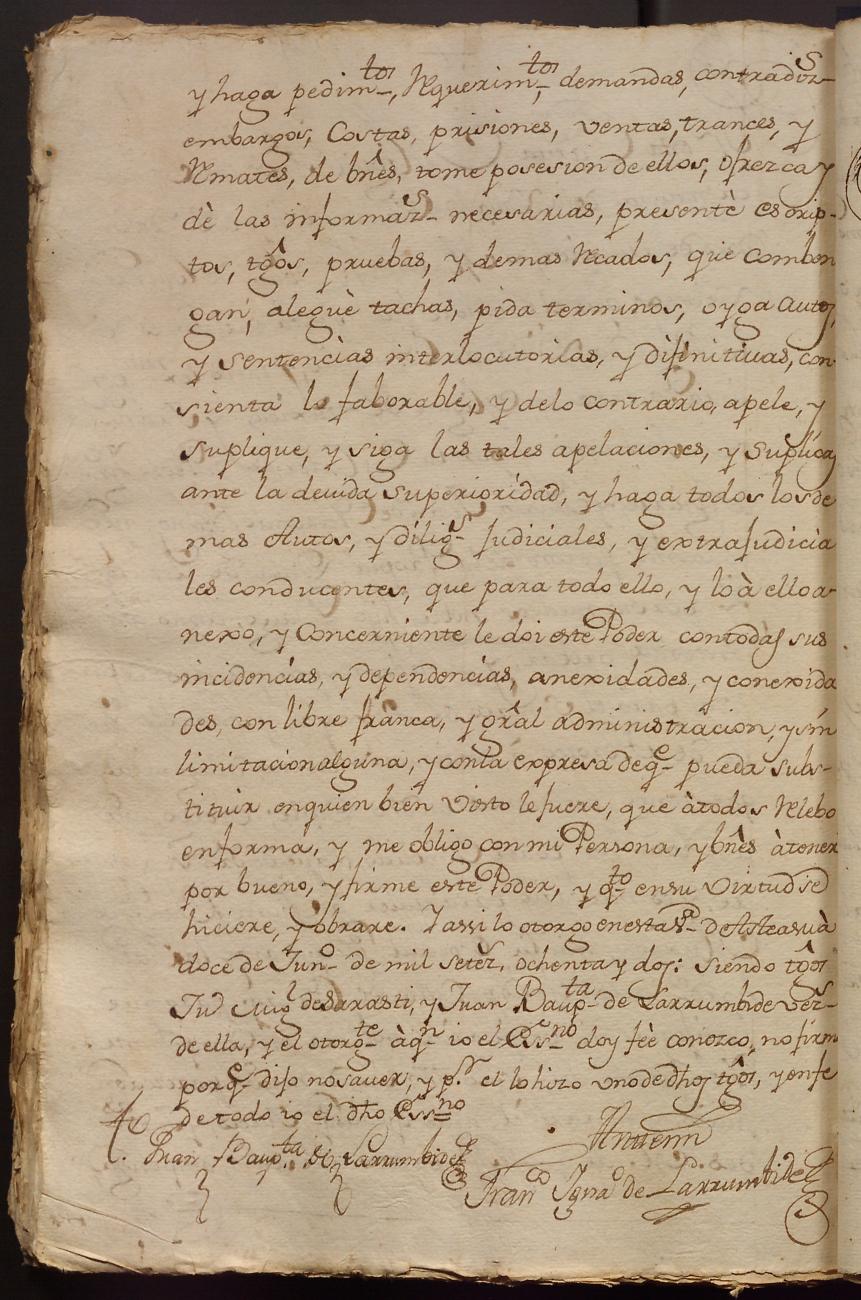 y haga pedim.tos, Requerim.tos, demandas, contradiz.s
embargos, Costas, prisiones, ventas, trances, y
Remates, de bñes, tome posesion de ellos, ofrezca y
dè las informaz.s necesarias, presentè escrip-
tos, tgôs, pruebas, y demas Recados, que comben
gan, aleguè tachas, pida terminos, oyga autos,
y sentencias interlocutorias, y difinitivas, con
sienta lo faborable, y delo contrario, apele, y
suplique, y siga las tales apelaciones, y suplicas
ante la devida superioridad, y haga todos los de
mas Autos, y dilig.s Judiciales, y extrajudicia
les conducentes, que para todo ello, y lo à ello a-
nexo, y Concerniente le doi este Poder con todas sus
incidencias, y dependencias, anexidades, y conexida
des, con libre franca, y grâl administracion, y sin
limitacion alguna, y con la expresa de q.e pueda subs-
tituir en quien bien visto le fuere, que à todos Relebo
en forma, y me obligo con mi Persona, y bñes à tener
por bueno, y firme este Poder, y q.to en su virtud se
hiciere, y obrare. I assi lo otorgo en esta V.ª de Asteasu à
doce de Jun.o de mil setez. ochenta y dos: siendo tgôs
Ju.o Mig.l de Sarasti, y Juan Baup.ta de Larrumbide vez.s
de ella, y el otorg.te à q.n io el Ess.no doy fèe conozco, no firm
porq.e dijo no saver, y p.r el lo hizo uno de dhos tgôs, y en fe
de todo io el dho Ess.no
t.o Juan Baup.ta de Larrumbide
Ante mi
Fran.co Igna.o de Larrumbide